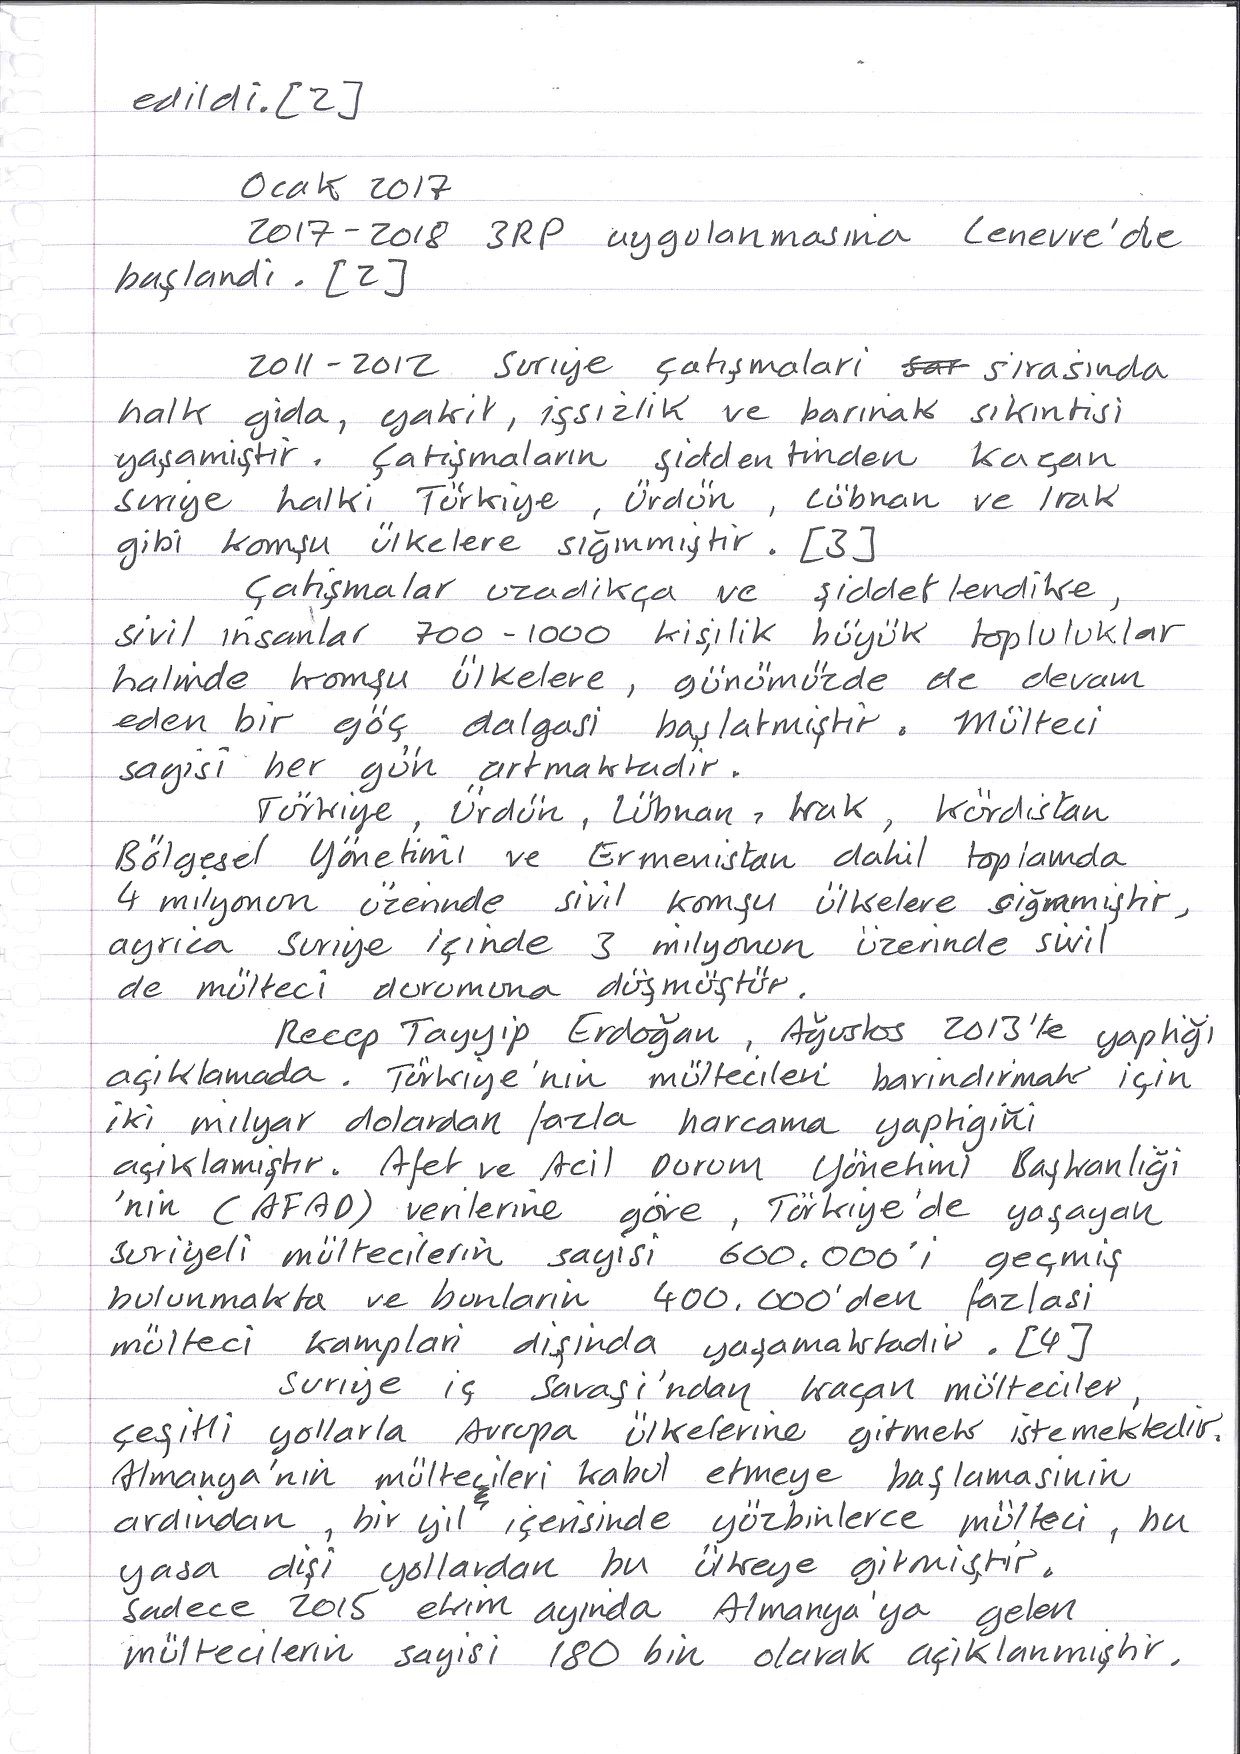 edildi.[2]
Ocak 2017
2017-2018 3RP uygulanmasına Cenevre'de
başlandi. [2]
2011-2012 Suriye çatışmalari sar sirasinda
halk gida, yakit, işsizlik ve barınak sıkıntisi
yaşamiştir. Çatişmaların şiddentinden kaçan
Suriye halki Türkiye, Ürdün, Lübnan ve Irak
gibi komşu ülkelere sığınmıştir. [3]
Çatişmalar uzadikça ve şiddetlendikçe,
sivil insanlar 700-1000 kişilik büyük topluluklar
halinde komşu ülkelere, günümüzde de devam
eden bir göç dalgasi başlatmiştir. Mülteci
sayisi her gün artmaktadir.
Türkiye, Ürdün, Lübnan, Irak, Kürdistan
Bölgesel Yönetimi ve Ermenistan dahil toplamda
4 milyonun üzerinde sivil komşu ülkelere siğınmıştır,
ayrica Suriye içinde 3 milyonun üzerinde sivil
de mülteci durumuna düşmüştür.
Recep Tayyip Erdoğan, Ağustos 2013'te yaptiği
açiklamada. Türkiye'nin mültecileri barindirmak için
iki milyar dolardan fazla harcama yaptigini
açiklamiştır. Afet ve Acil Durum Yönetimi Başkanliği
'nin (AFAD) verilerine göre, Türkiye'de yaşayan
suriyeli mültecilerin sayisi 600.000'i geçmiş
bulunmakta ve bunların 400.000'den fazlasi
mülteci kamplari dişinda yaşamaktadir. [4]
Suriye iç Savaşi'ndan kaçan mülteciler,
çeşitli yollarla Avrupa ülkelerine gitmek istemektedir.
Almanya'nin mültecileri kabul etmeye başlamasinin
ardindan, bir yil içerisinde yüzbinlerce mülteci, bu
yasa dişi yollardan bu ülkeye gitmiştir.
Sadece 2015 ekim ayında Almanya'ya gelen
mültecilerin sayisi 180 bin olarak açiklanmıştır.